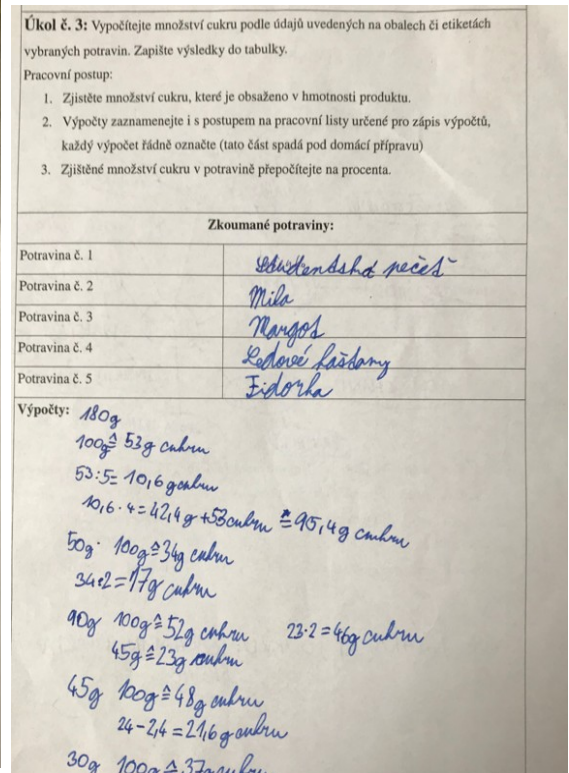 Úkol č. 3: Vypočítejte množství cukru podle údajů uvedených na obalech či etiketách
vybraných potravin. Zapište výsledky do tabulky.
Pracovní postup:
1. Zjistěte množství cukru, které je obsaženo v hmotnosti produktu.
2. Výpočty zaznamenejte i s postupem na pracovní listy určené pro zápis výpočtů,
každý výpočet řádně označte (tato část spadá pod domácí přípravu)
3. Zjištěné množství cukru v potravině přepočítejte na procenta.
Zkoumané potraviny:
Potravina č. 1 Studentská pečeť
Potravina č. 2 Mila
Potravina č. 3 Margot
Potravina č. 4 Ledové kaštany
Potravina č. 5 Fidorka
Výpočty: 180g
100g ≙ 53g cukru
53:5= 10,6g cukru
10,6 · 4 = 42,4g + 53 cukru ≙ 95,4g cukru
50g · 100g ≙ 34g cukru
34:2 = 17g cukru
90g 100g ≙ 52g cukru 23·2 = 46g cukru
45g ≙ 23g cukru
45g 100g ≙ 48g cukru
24-2,4 = 21,6g cukru
30g 100g ≙ 37g cukru